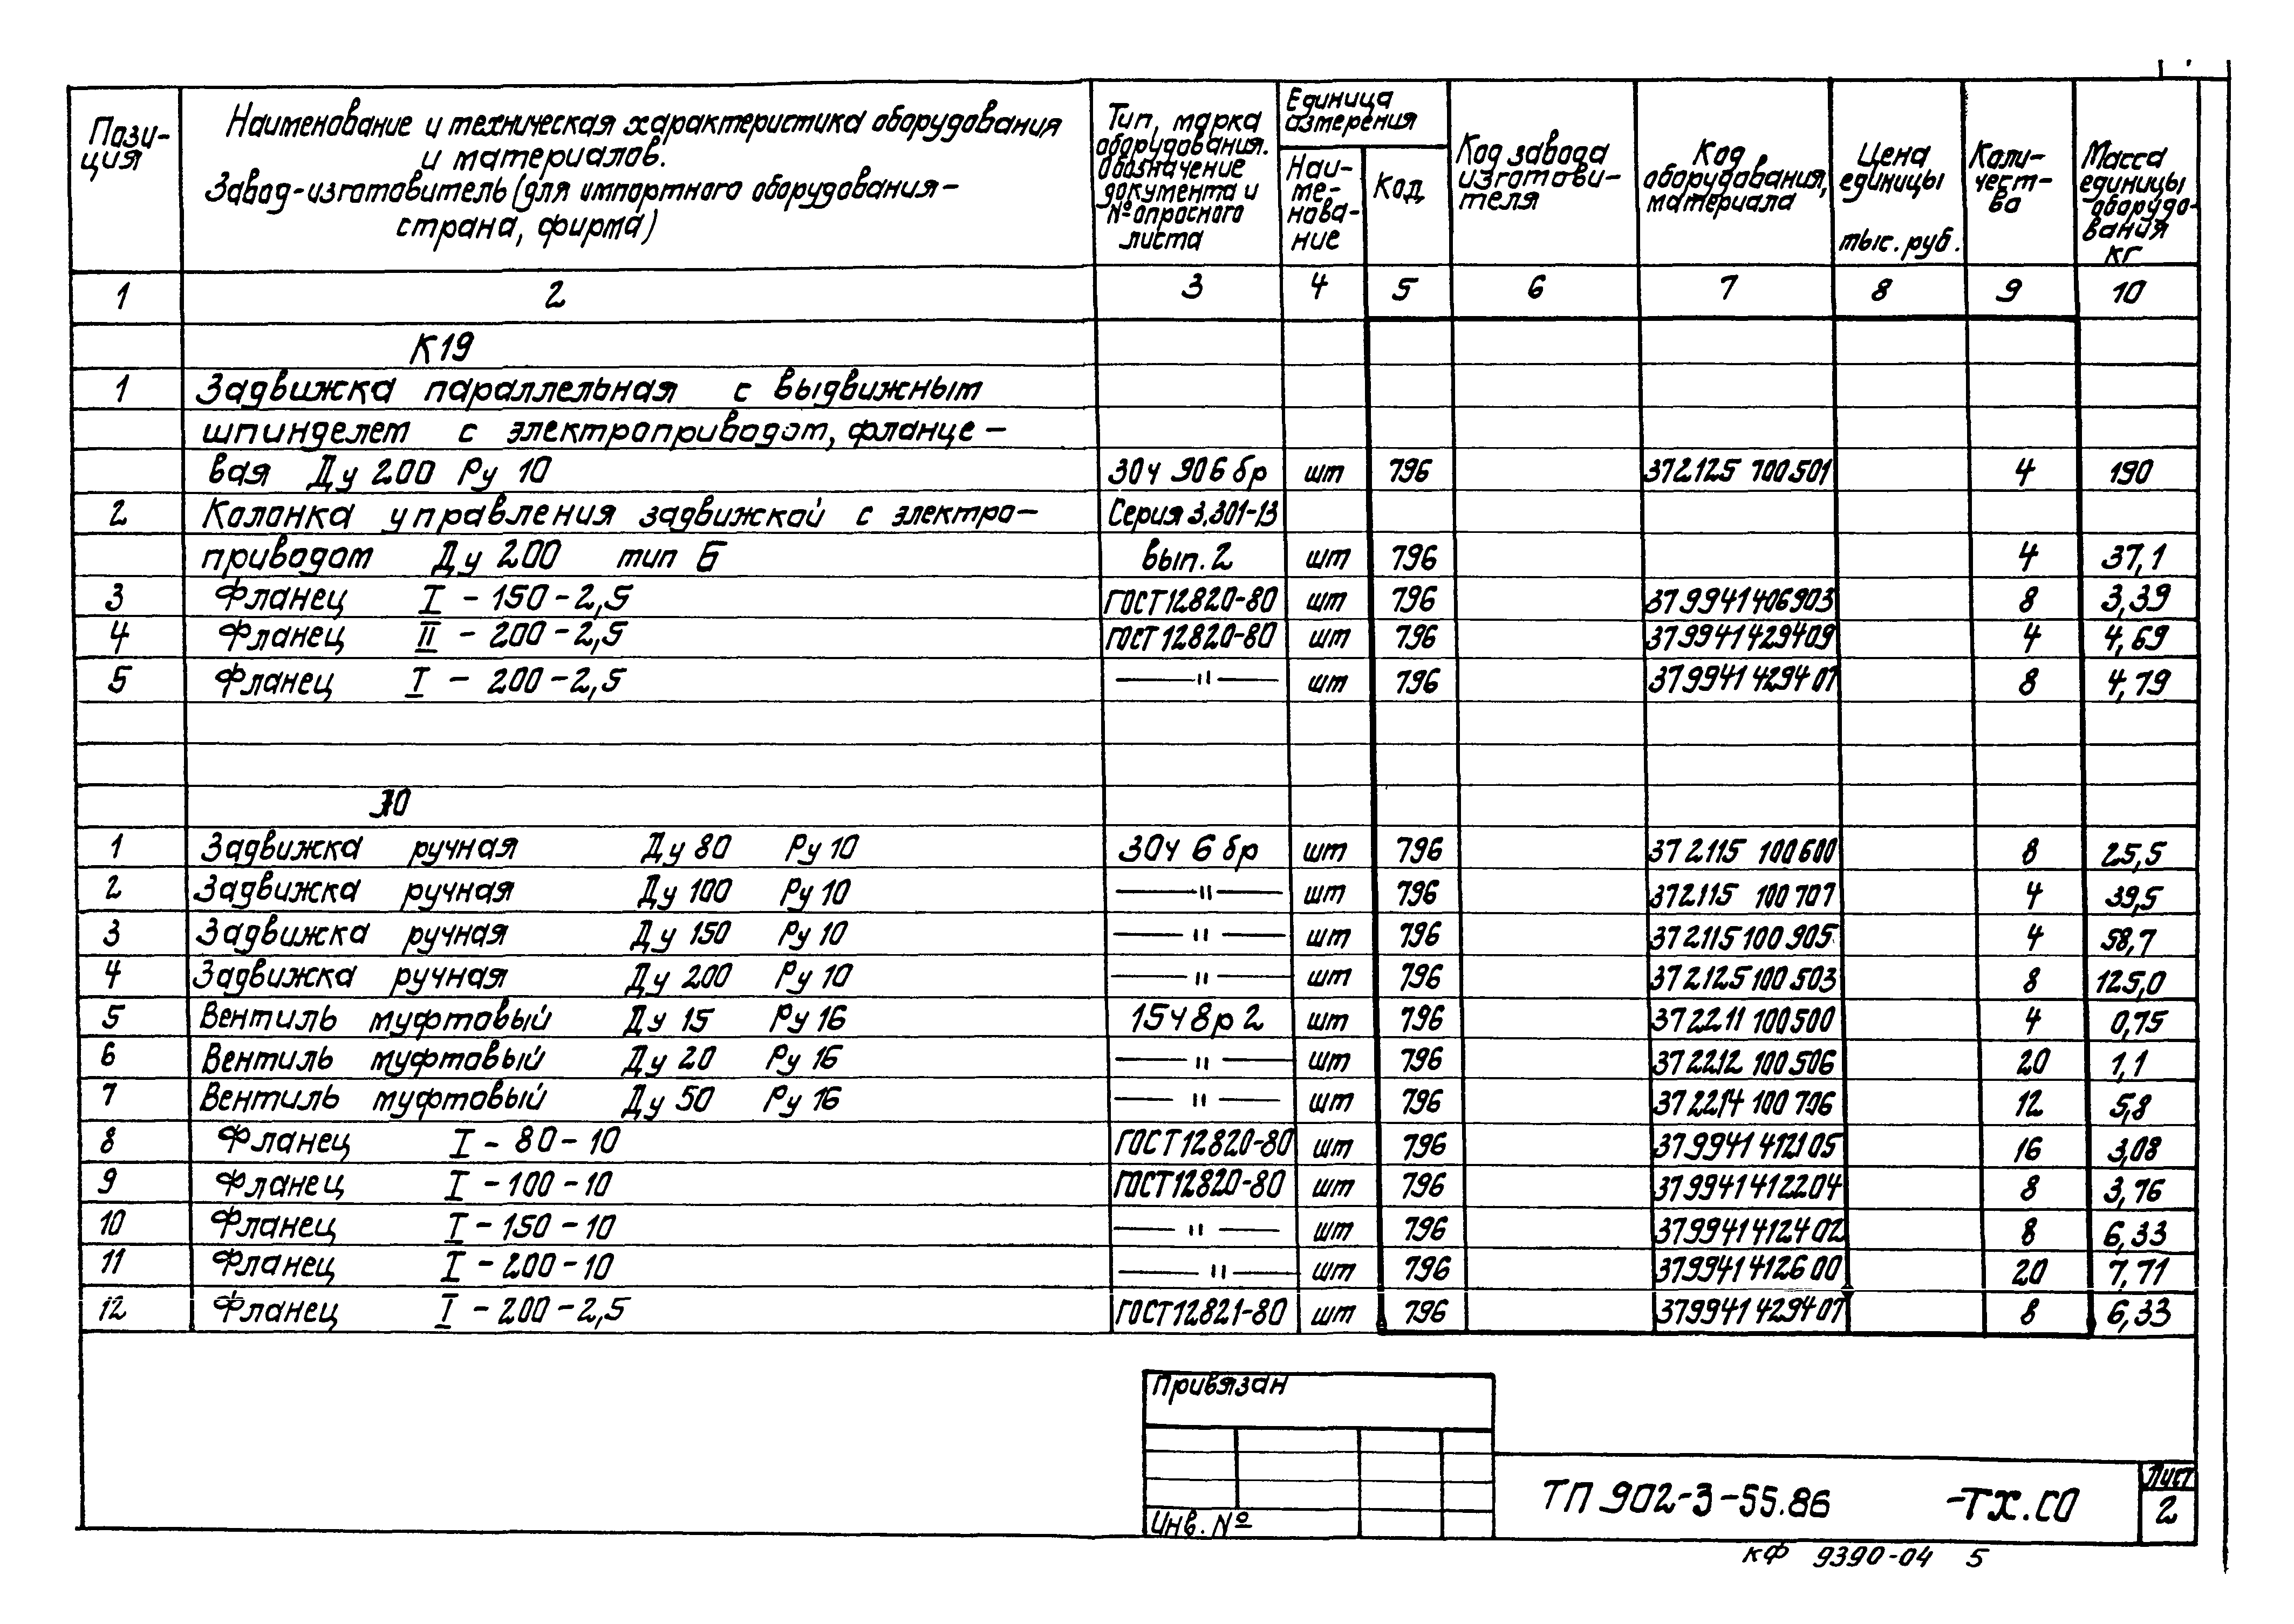 Пози-
ция
Наименование и техническая характеристика оборудования
и материалов.
Завод-изготовитель (для импортного оборудования-
страна, фирма)
Тип, марка
оборудования.
Обозначение
документа и
№ опросного
листа
Единица
измерения
Наи-
ме-
нова-
ние
Код
Код завода
изготови-
теля
Код
оборудования,
материала
Цена
единицы
тыс. руб.
Коли-
чест-
во
Масса
единицы
оборудо-
вания
кг
1 2 3 4 5 6 7 8 9 10
К19
1 Задвижка параллельная с выдвижным
шпинделем с электроприводом, фланце-
вая Ду 200 Ру 10 30ч 906 бр шт 796 372125 700501 4 190
2 Колонка управления задвижкой с электро- Серия 3.301-13
приводом Ду 200 тип Б вып. 2 шт 796 4 37,1
3 Фланец I - 150 - 2,5 ГОСТ 12820-80 шт 796 379941406903 8 3,39
4 Фланец II - 200 - 2,5 ГОСТ 12820-80 шт 796 379941429409 4 4,69
5 Фланец I - 200 - 2,5 — " — шт 796 379941 429407 8 4,79
1 Задвижка ручная Ду 80 Ру 10 30ч 6 бр шт 796 372115 100600 8 25,5
2 Задвижка ручная Ду 100 Ру 10 — " — шт 796 372115 100707 4 39,5
3 Задвижка ручная Ду 150 Ру 10 — " — шт 796 372115 100905 4 58,7
4 Задвижка ручная Ду 200 Ру 10 — " — шт 796 372125 100503 8 125,0
5 Вентиль муфтовый Ду 15 Ру 16 15ч 8р 2 шт 796 372211 100500 4 0,75
6 Вентиль муфтовый Ду 20 Ру 16 — " — шт 796 372212 100506 20 1,1
7 Вентиль муфтовый Ду 50 Ру 16 — " — шт 796 372214 100706 12 5,8
8 Фланец I - 80 - 10 ГОСТ 12820-80 шт 796 379941 412105 16 3,08
9 Фланец I - 100 - 10 ГОСТ 12820-80 шт 796 379941412204 8 3,76
10 Фланец I - 150 - 10 — " — шт 796 379941412402 8 6,33
11 Фланец I - 200 - 10 — " — шт 796 379941 412600 20 7,71
12 Фланец I - 200 - 2,5 ГОСТ 12821-80 шт 796 379941 429407 8 6,33
Привязан
Инв. №
ТП 902-3-55.86 -ТХ.СО
Лист
2
кФ 9390-04 5